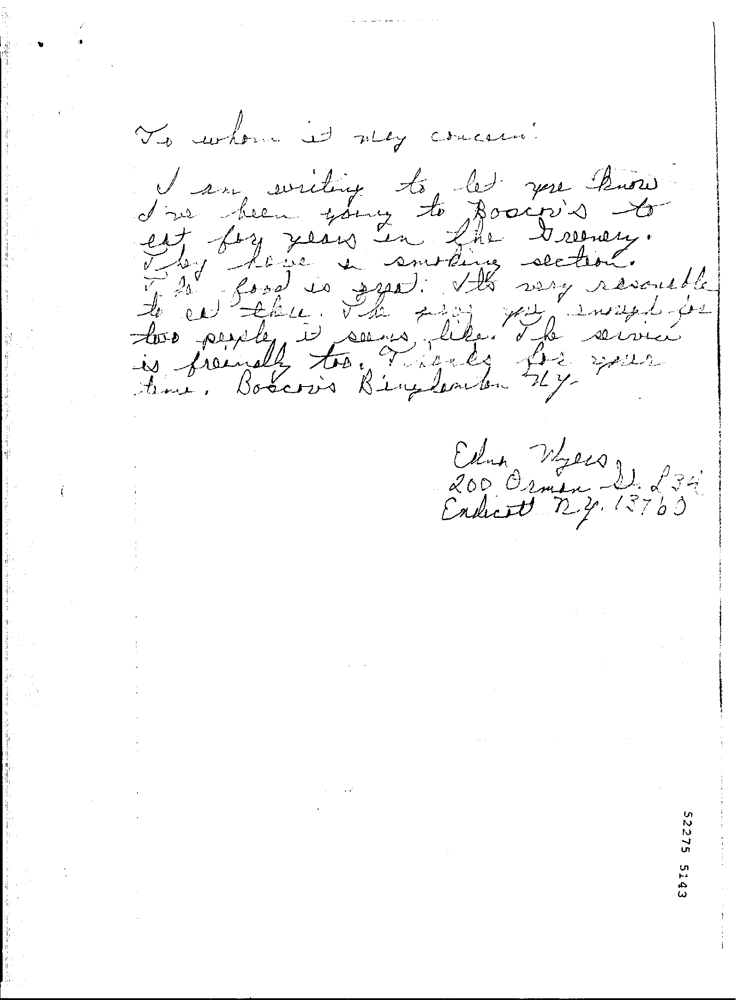 To whom it may concern:
I am writing to let you know
I've been going to Boscov's to
eat for years in the Greenery.
They have a smoking section.
The food is great. It's very resonable
to eat there. The give you enough for
two people it seems like. The service
is freindly too. Thanks for your
time. Boscov's Binghamton N.Y.
Edna Myers
200 Orman St. L34
Endicott N.Y. 13760
52275 5143